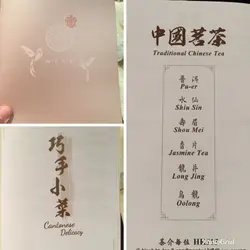 中國茗茶
Traditional Chinese Tea
普洱
Pu-er
水仙
Shiu Sin
壽眉
Shou Mei
香片
Jasmine Tea
龍井
Long Jing
烏龍
Oolong
茶介每位
巧手小菜
Cantonese
Delicacy